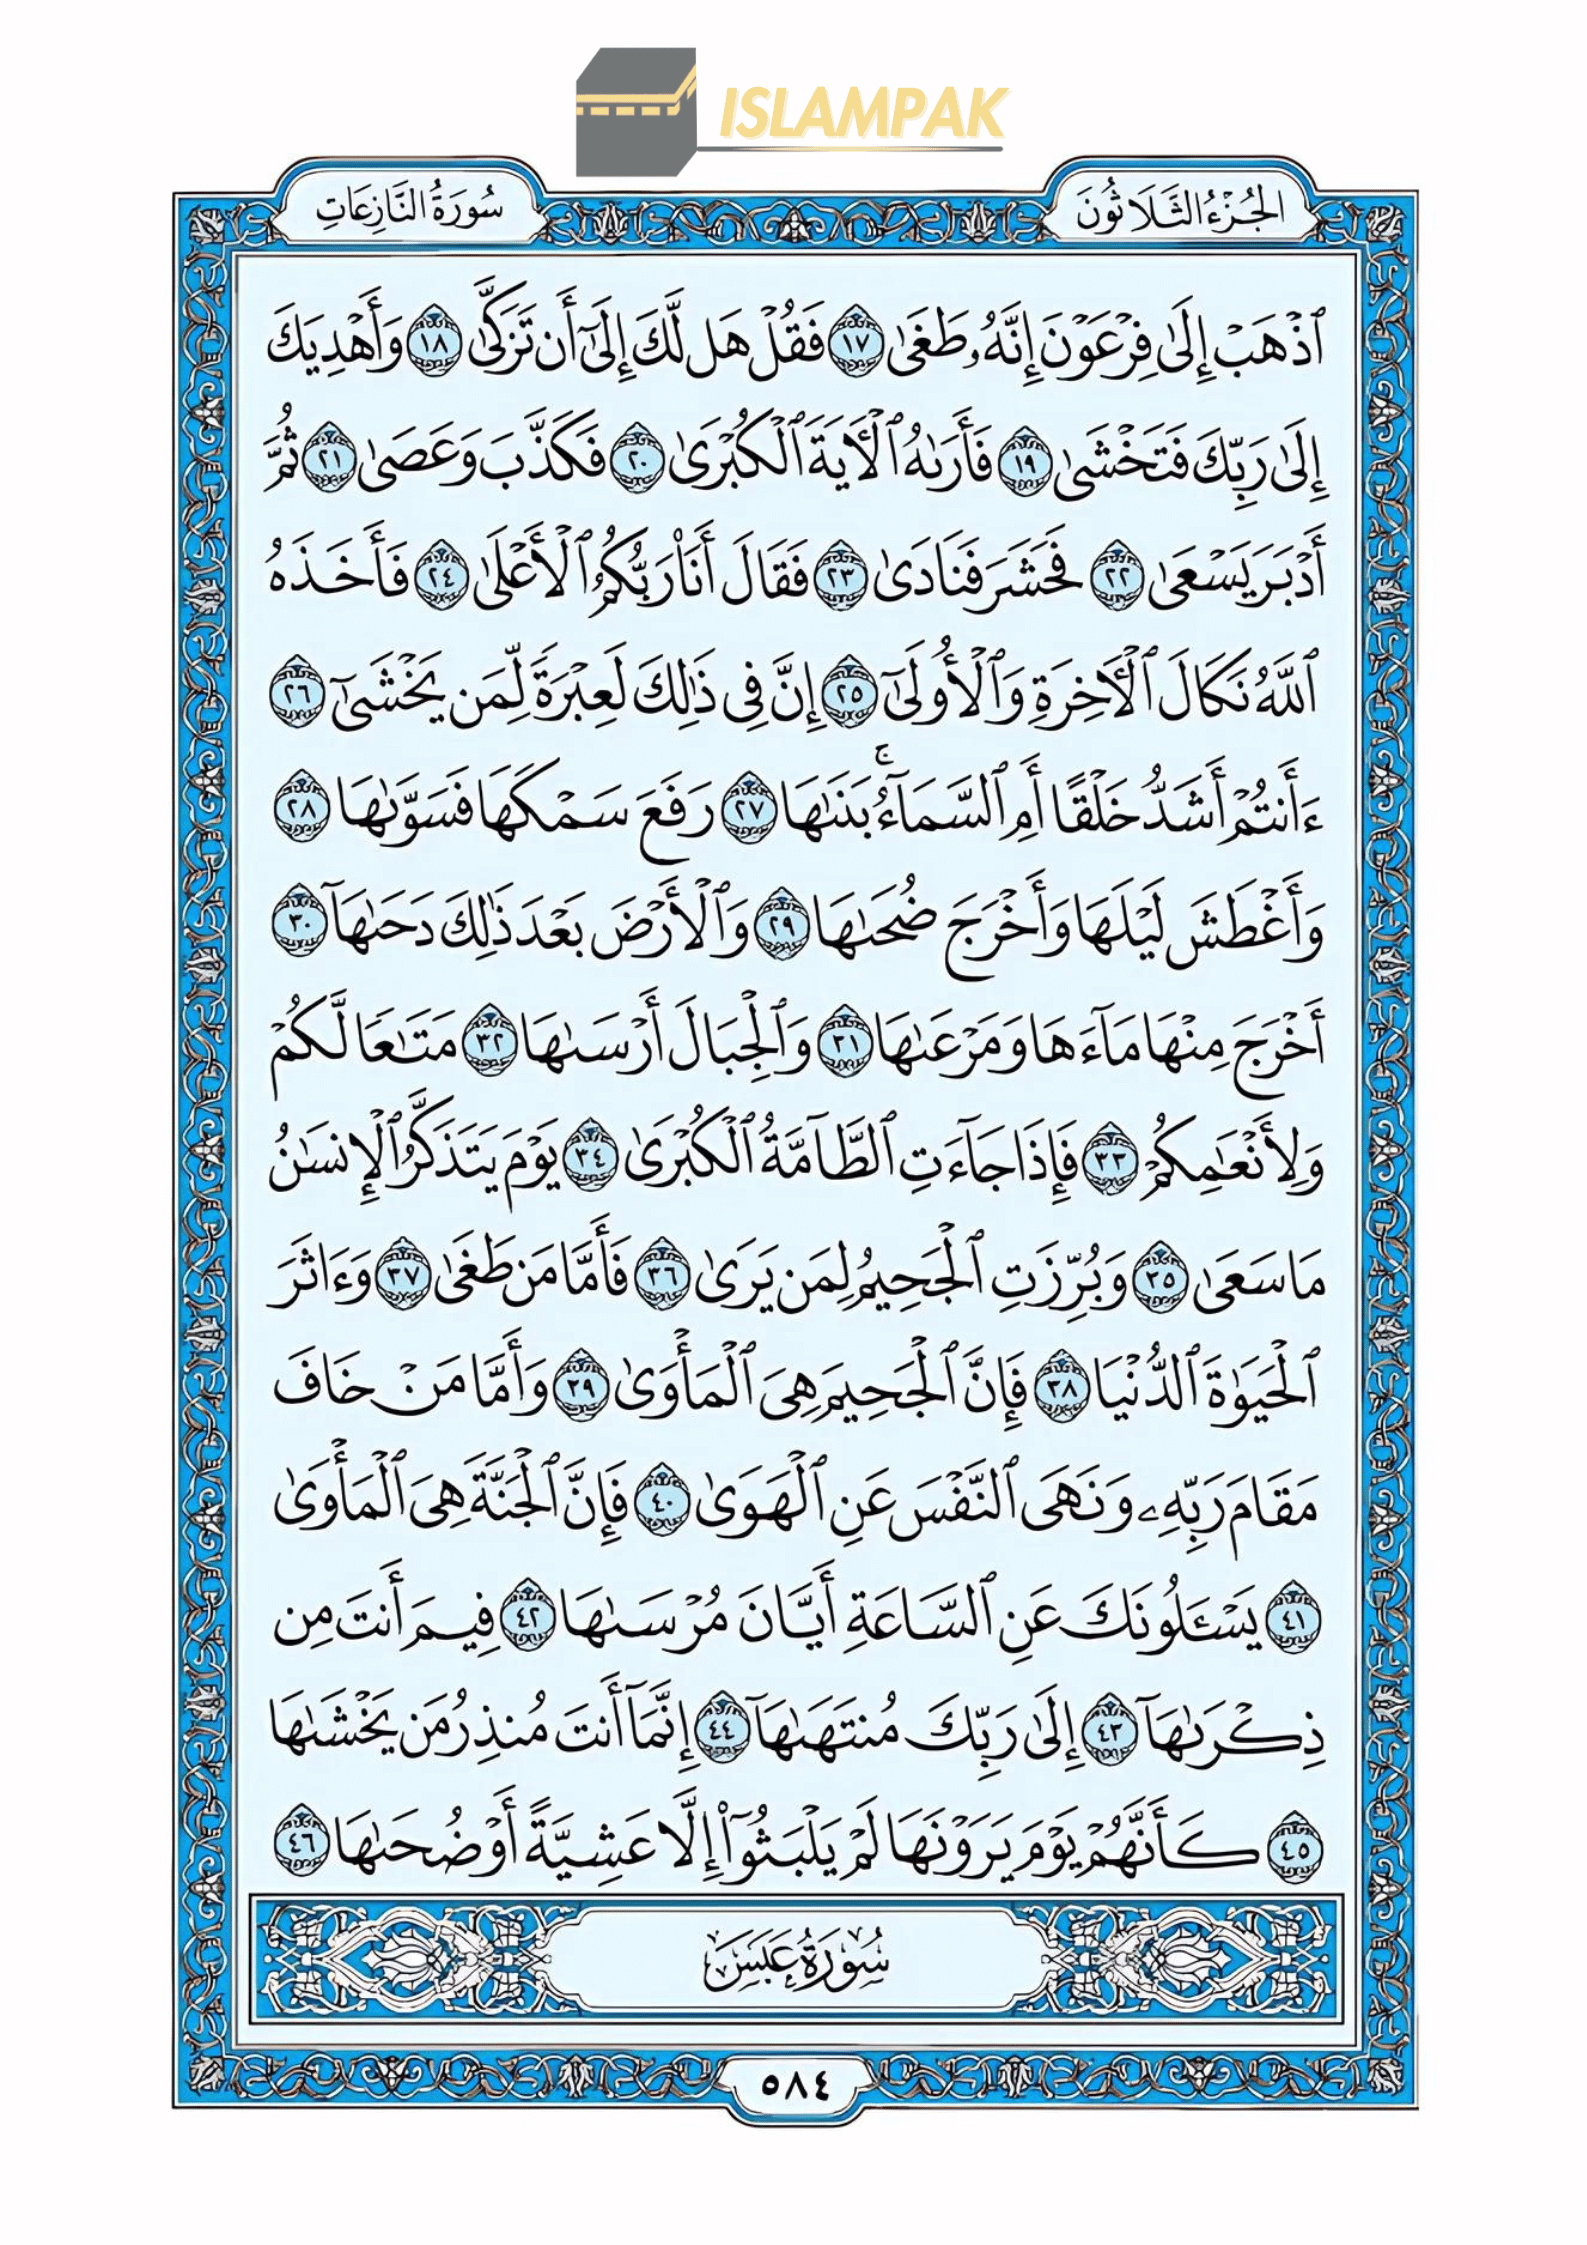 ISLAMPAK
الجُزْءُ الثَّلَاثُونَ
سُورَةُ النَّازِعَاتِ
ٱذْهَبْ إِلَىٰ فِرْعَوْنَ إِنَّهُۥ طَغَىٰ ١٧ فَقُلْ هَل لَّكَ إِلَىٰٓ أَن تَزَكَّىٰ ١٨ وَأَهْدِيَكَ
إِلَىٰ رَبِّكَ فَتَخْشَىٰ ١٩ فَأَرَىٰهُ ٱلْأٓيَةَ ٱلْكُبْرَىٰ ٢٠ فَكَذَّبَ وَعَصَىٰ ٢١ ثُمَّ
أَدْبَرَ يَسْعَىٰ ٢٢ فَحَشَرَ فَنَادَىٰ ٢٣ فَقَالَ أَنَا۠ رَبُّكُمُ ٱلْأَعْلَىٰ ٢٤ فَأَخَذَهُ
ٱللَّهُ نَكَالَ ٱلْأٓخِرَةِ وَٱلْأُولَىٰٓ ٢٥ إِنَّ فِى ذَٰلِكَ لَعِبْرَةً لِّمَن يَخْشَىٰٓ ٢٦
ءَأَنتُمْ أَشَدُّ خَلْقًا أَمِ ٱلسَّمَآءُ ۚ بَنَىٰهَا ٢٧ رَفَعَ سَمْكَهَا فَسَوَّىٰهَا ٢٨
وَأَغْطَشَ لَيْلَهَا وَأَخْرَجَ ضُحَىٰهَا ٢٩ وَٱلْأَرْضَ بَعْدَ ذَٰلِكَ دَحَىٰهَآ ٣٠
أَخْرَجَ مِنْهَا مَآءَهَا وَمَرْعَىٰهَا ٣١ وَٱلْجِبَالَ أَرْسَىٰهَا ٣٢ مَتَـٰعًا لَّكُمْ
وَلِأَنْعَـٰمِكُمْ ٣٣ فَإِذَا جَآءَتِ ٱلطَّآمَّةُ ٱلْكُبْرَىٰ ٣٤ يَوْمَ يَتَذَكَّرُ ٱلْإِنسَـٰنُ
مَا سَعَىٰ ٣٥ وَبُرِّزَتِ ٱلْجَحِيمُ لِمَن يَرَىٰ ٣٦ فَأَمَّا مَن طَغَىٰ ٣٧ وَءَاثَرَ
ٱلْحَيَوٰةَ ٱلدُّنْيَا ٣٨ فَإِنَّ ٱلْجَحِيمَ هِىَ ٱلْمَأْوَىٰ ٣٩ وَأَمَّا مَنْ خَافَ
مَقَامَ رَبِّهِۦ وَنَهَى ٱلنَّفْسَ عَنِ ٱلْهَوَىٰ ٤٠ فَإِنَّ ٱلْجَنَّةَ هِىَ ٱلْمَأْوَىٰ
٤١ يَسْـَٔلُونَكَ عَنِ ٱلسَّاعَةِ أَيَّانَ مُرْسَىٰهَا ٤٢ فِيمَ أَنتَ مِن
ذِكْرَىٰهَآ ٤٣ إِلَىٰ رَبِّكَ مُنتَهَىٰهَآ ٤٤ إِنَّمَآ أَنتَ مُنذِرُ مَن يَخْشَىٰهَا
٤٥ كَأَنَّهُمْ يَوْمَ يَرَوْنَهَا لَمْ يَلْبَثُوٓا۟ إِلَّا عَشِيَّةً أَوْ ضُحَىٰهَا ٤٦
سُورَةُ عَبَسَ
٥٨٤